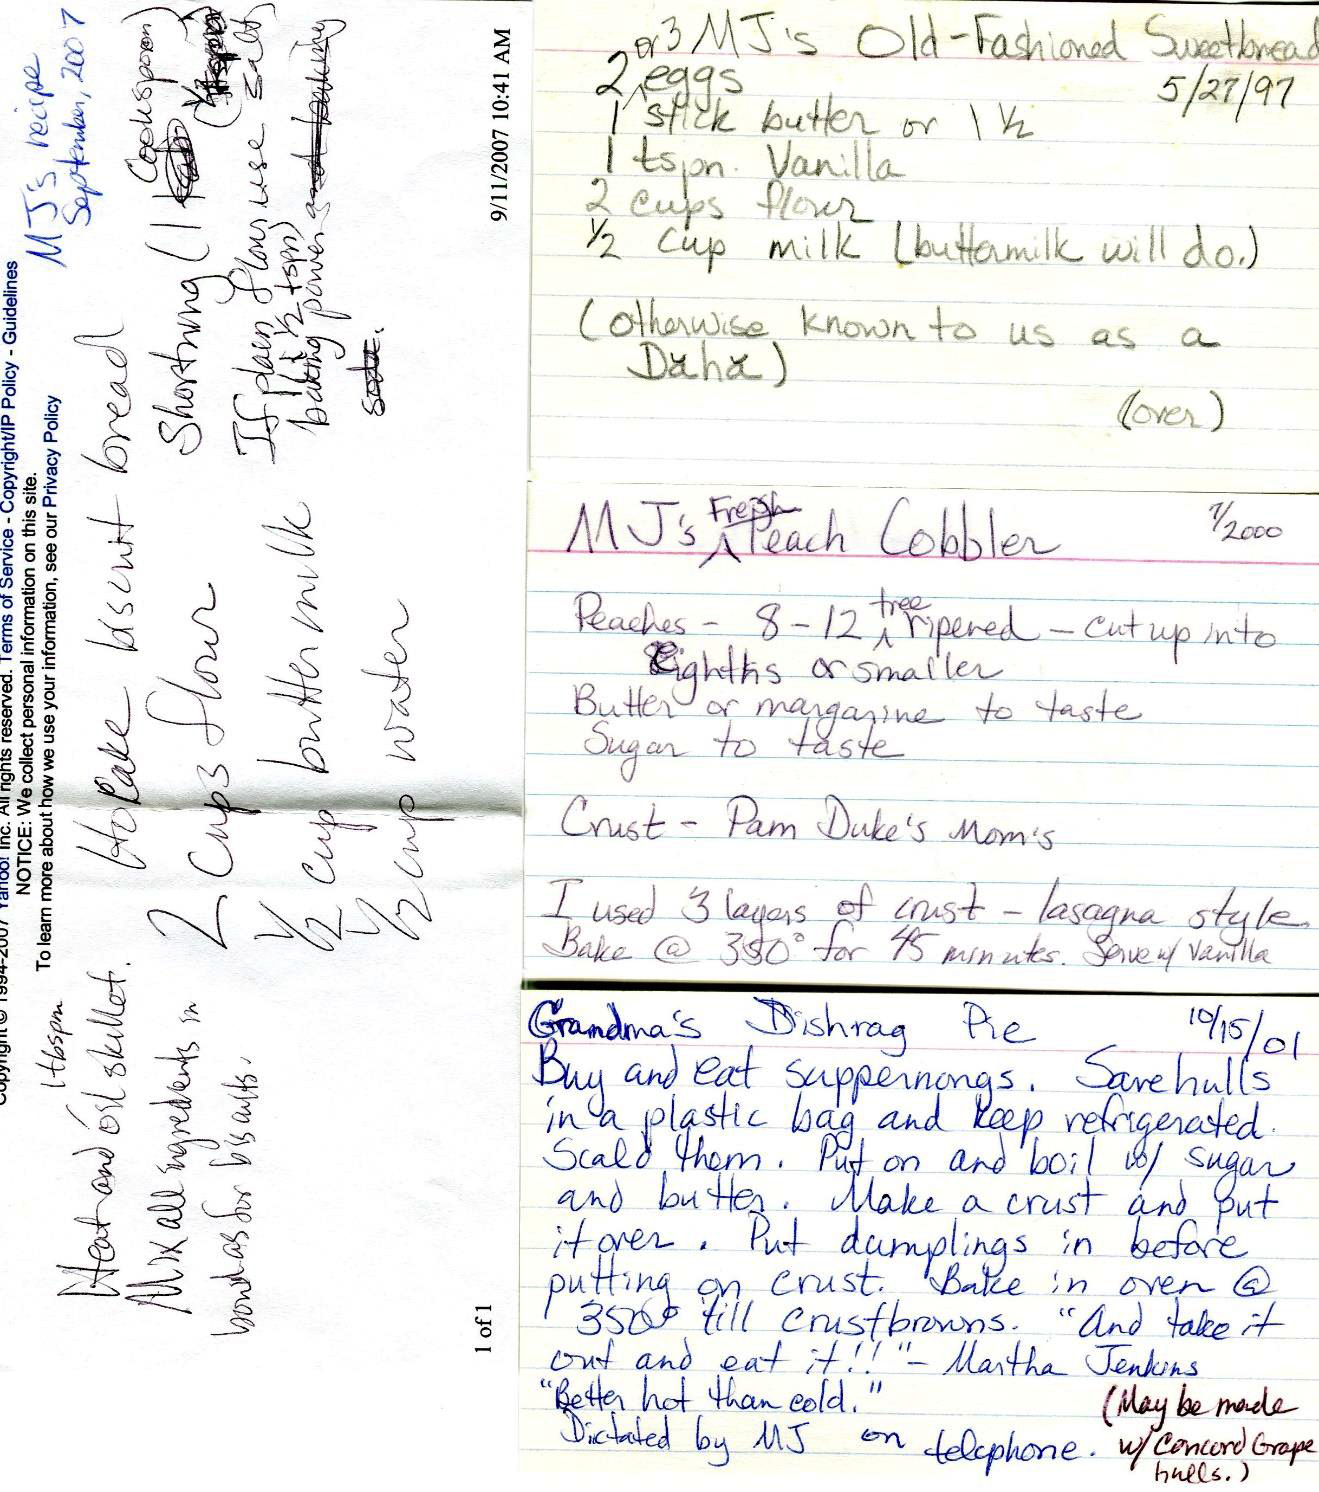 MJ's recipe
September, 2007
Copyright © 1994-2007 Yahoo! Inc. All rights reserved. Terms of Service - Copyright/IP Policy - Guidelines
NOTICE: We collect personal information on this site.
To learn more about how we use your information, see our Privacy Policy
Hocake biscuit bread
2 cups flour
Shortning (1 Cookspoon)
If plain flour use salt
(1 1/2 tspn)
baking power and baking
soda.
1/2 cup buttermilk
1/2 cup water
1 tbspn
Heat and oil skillet.
Mix all ingredients in
bowl as for biscuits.
1 of 1
9/11/2007 10:41 AM
MJ's Old-Fashioned Sweetbread
5/27/97
2 or 3 eggs
1 stick butter or 1 1/2
1 tspn. Vanilla
2 cups flour
1/2 cup milk (buttermilk will do.)
(otherwise known to us as a
Dăhă)
(over)
MJ's Fresh Peach Cobbler
7/2000
Peaches - 8-12 tree ripened - cut up into
Eighths or smaller
Butter or margarine to taste
Sugar to taste
Crust - Pam Duke's Mom's
I used 3 layers of crust - lasagna style.
Bake @ 350° for 45 minutes. Serve w/ Vanilla
Grandma's Dishrag Pie
10/15/01
Buy and eat suppernongs. Save hulls
in a plastic bag and keep refrigerated.
Scald them. Put on and boil w/ sugar
and butter. Make a crust and put
it over. Put dumplings in before
putting on crust. Bake in oven @
350° till crust browns. "And take it
out and eat it!!" - Martha Jenkins
"Better hot than cold."
Dictated by MJ on telephone.
(May be made
w/ Concord Grape
hulls.)